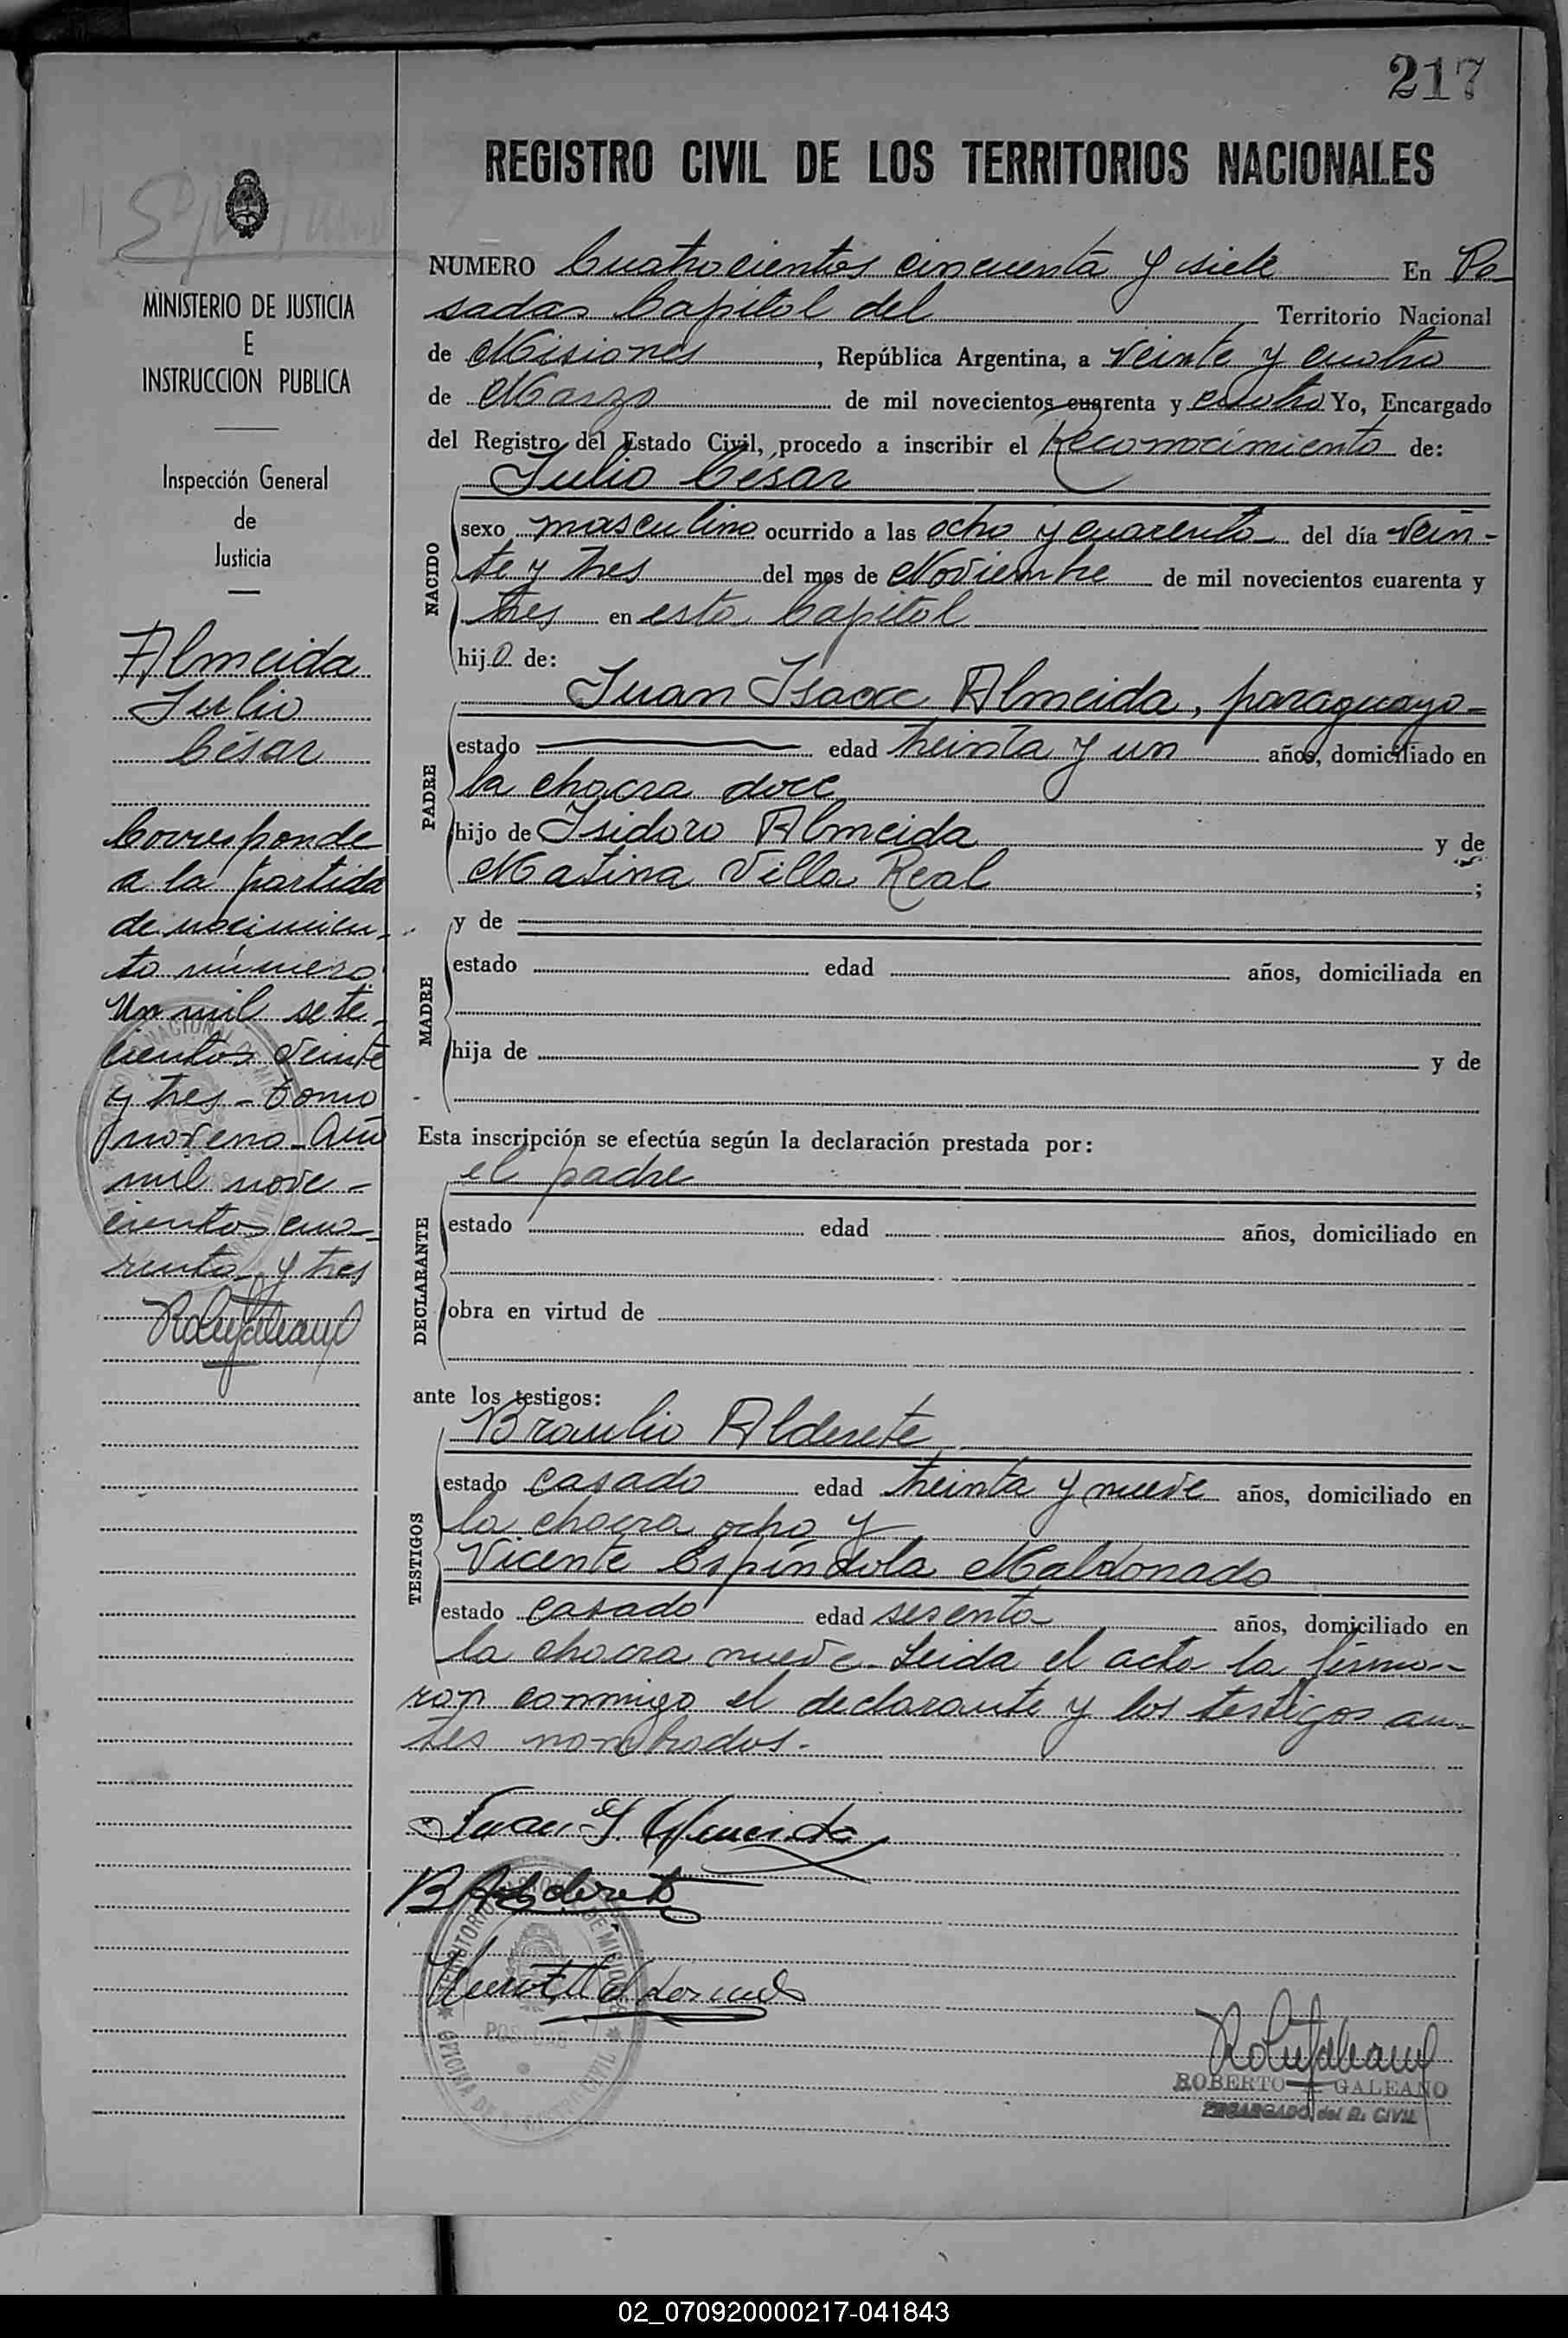 217
REGISTRO CIVIL DE LOS TERRITORIOS NACIONALES
NUMERO Cuatrocientos cincuenta y siete En Po-
sadas Capital del Territorio Nacional
de Misiones, República Argentina, a veinte y cuatro
de Marzo de mil novecientos cuarenta y cuatro Yo, Encargado
del Registro del Estado Civil, procedo a inscribir el Reconocimiento de:
Julio César
NACIDO
sexo masculino ocurrido a las ocho y cuarenta del día vein-
te y tres del mes de Noviembre de mil novecientos cuarenta y
tres en esta Capital
hijo de:
Juan Isaac Almeida, paraguayo-
PADRE
estado edad treinta y un años, domiciliado en
la chacra doce
hijo de Isidoro Almeida y de
Matina Villa Real ;
MADRE
y de
estado edad años, domiciliada en
hija de y de
Esta inscripción se efectúa según la declaración prestada por:
el padre
DECLARANTE
estado edad años, domiciliado en
obra en virtud de
ante los testigos:
TESTIGOS
Braulio Alderete
estado casado edad treinta y nueve años, domiciliado en
la chacra ocho y
Vicente Espíndola Maldonado
estado casado edad sesenta años, domiciliado en
la chacra nueve. Leida el acta la firma-
ron conmigo el declarante y los testigos an-
tes nombrados.-
Juan I. Almeida
B Alderete
ROBERTO A. GALEANO
ENCARGADO del R. CIVIL
TERRITORIO NACIONAL DE MISIONES
POSADAS
OFICINA DE REGISTRO CIVIL
MINISTERIO DE JUSTICIA
E
INSTRUCCION PUBLICA
Inspección General
de
Justicia
Almeida
Julio
César
Corresponde
a la partida
de nacimien-
to número
Un mil sete-
cientos veinte
y tres - tomo
noveno - Año
mil nove-
cientos cua-
renta y tres
02_070920000217-041843